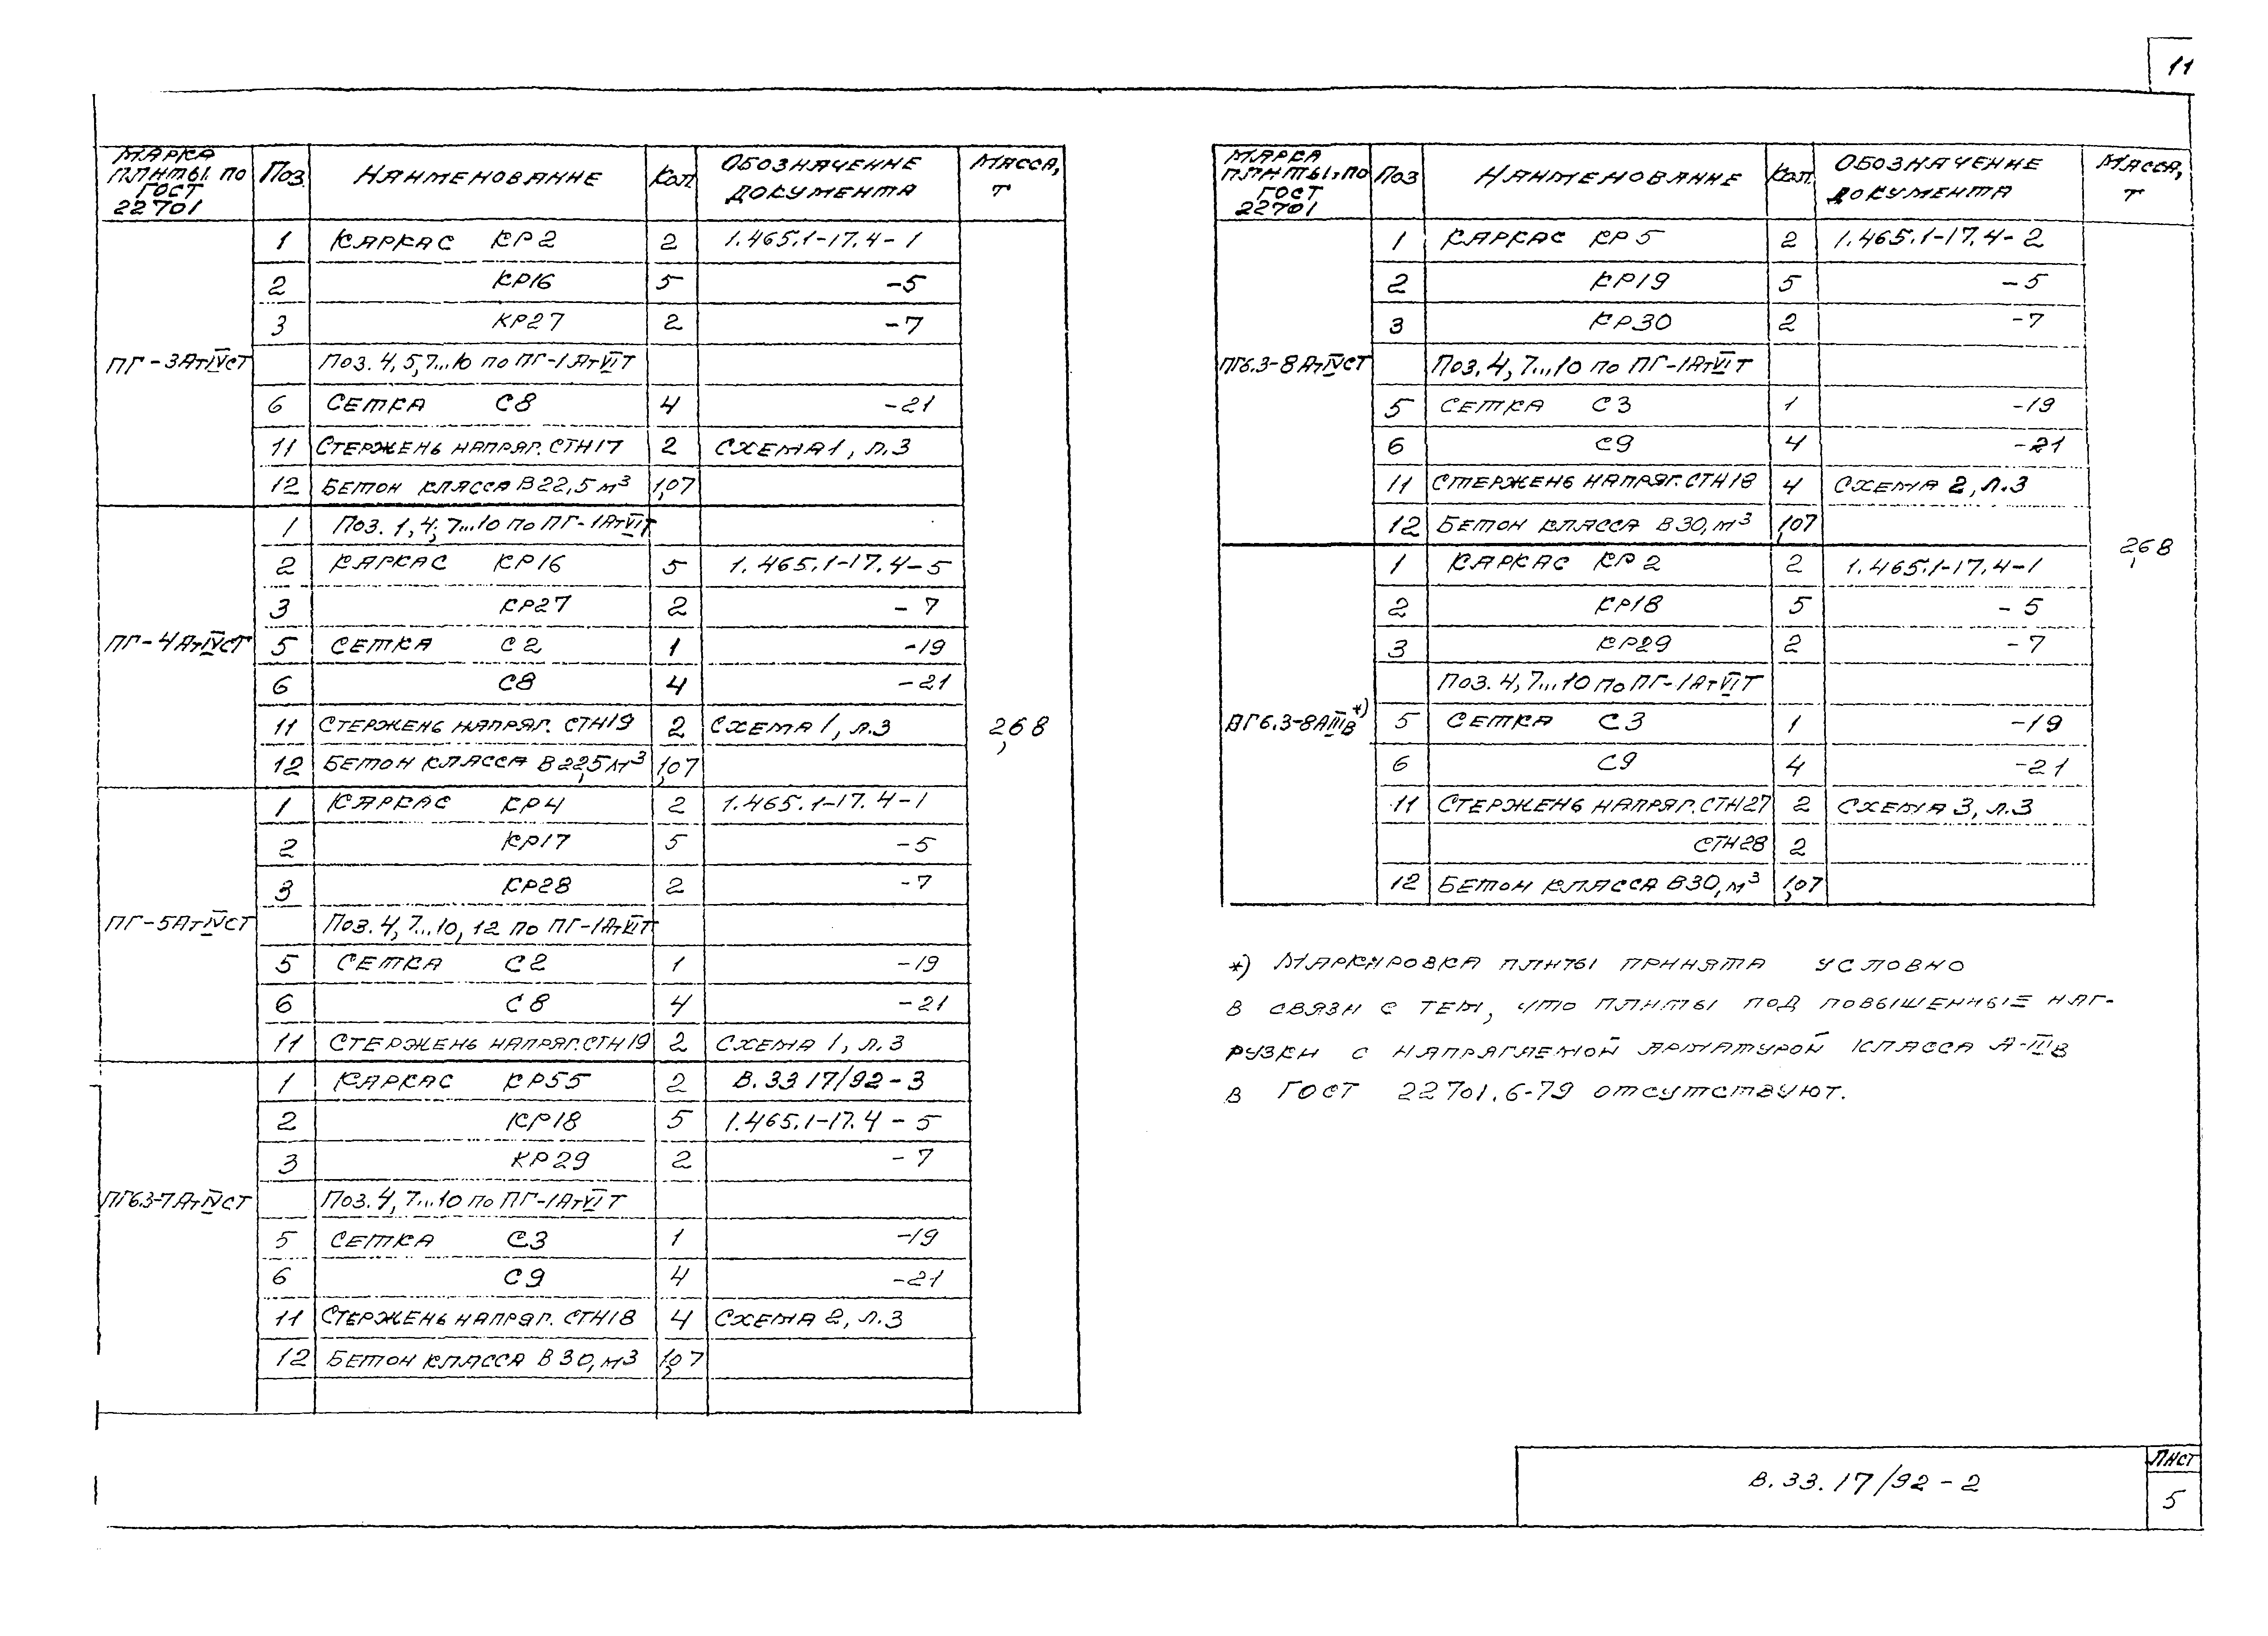 11
МАРКА ПЛИТЫ ПО ГОСТ 22701 | Поз. | НАИМЕНОВАНИЕ | Кол. | ОБОЗНАЧЕНИЕ ДОКУМЕНТА | МАССА, Т
ПГ-3АтIVСТ
1 | КАРКАС КР2 | 2 | 1.465.1-17.4-1
2 | КР16 | 5 | -5
3 | КР27 | 2 | -7
Поз. 4,5,7...10 по ПГ-1АтVIТ
6 | СЕТКА С8 | 4 | -21
11 | СТЕРЖЕНЬ НАПРЯГ. СТН17 | 2 | СХЕМА 1, Л.3
12 | БЕТОН КЛАССА В22,5 м³ | 1,07
ПГ-4АтIVСТ
1 | Поз. 1,4,7...10 по ПГ-1АтVIТ
2 | КАРКАС КР16 | 5 | 1.465.1-17.4-5
3 | КР27 | 2 | -7
5 | СЕТКА С2 | 1 | -19
6 | С8 | 4 | -21
11 | СТЕРЖЕНЬ НАПРЯГ. СТН19 | 2 | СХЕМА 1, Л.3
2,68
12 | БЕТОН КЛАССА В22,5 м³ | 1,07
ПГ-5АтIVСТ
1 | КАРКАС КР4 | 2 | 1.465.1-17.4-1
2 | КР17 | 5 | -5
3 | КР28 | 2 | -7
Поз. 4,7...10, 12 по ПГ-1АтVIТ
5 | СЕТКА С2 | 1 | -19
6 | С8 | 4 | -21
11 | СТЕРЖЕНЬ НАПРЯГ. СТН19 | 2 | СХЕМА 1, Л.3
ПГ6.3-7АтIVСТ
1 | КАРКАС КР55 | 2 | В.33 17/92-3
2 | КР18 | 5 | 1.465.1-17.4-5
3 | КР29 | 2 | -7
Поз. 4,7...10 по ПГ-1АтVIТ
5 | СЕТКА С3 | 1 | -19
6 | С9 | 4 | -21
11 | СТЕРЖЕНЬ НАПРЯГ. СТН18 | 4 | СХЕМА 2, Л.3
12 | БЕТОН КЛАССА В30, м³ | 1,07
МАРКА ПЛИТЫ, ПО ГОСТ 22701 | Поз | НАИМЕНОВАНИЕ | Кол. | ОБОЗНАЧЕНИЕ ДОКУМЕНТА | МАССА, Т
ПГ6.3-8АтIVСТ
1 | КАРКАС КР5 | 2 | 1.465.1-17.4-2
2 | КР19 | 5 | -5
3 | КР30 | 2 | -7
Поз. 4,7...10 по ПГ-1АтVIТ
5 | СЕТКА С3 | 1 | -19
6 | С9 | 4 | -21
11 | СТЕРЖЕНЬ НАПРЯГ. СТН18 | 4 | СХЕМА 2, Л.3
12 | БЕТОН КЛАССА В30, м³ | 1,07
2,68
ПГ6.3-8АIIIВ*)
1 | КАРКАС КР2 | 2 | 1.465.1-17.4-1
2 | КР18 | 5 | -5
3 | КР29 | 2 | -7
Поз. 4,7...10 по ПГ-1АтVIТ
5 | СЕТКА С3 | 1 | -19
6 | С9 | 4 | -21
11 | СТЕРЖЕНЬ НАПРЯГ. СТН27 | 2 | СХЕМА 3, Л.3
СТН28 | 2
12 | БЕТОН КЛАССА В30, м³ | 1,07
*) МАРКИРОВКА ПЛИТЫ ПРИНЯТА УСЛОВНО
В СВЯЗИ С ТЕМ, ЧТО ПЛИТЫ ПОД ПОВЫШЕННЫЕ НАГ-
РУЗКИ С НАПРЯГАЕМОЙ АРМАТУРОЙ КЛАССА А-IIIВ
В ГОСТ 22701.6-79 ОТСУТСТВУЮТ.
В.33.17/92-2
ЛИСТ
5